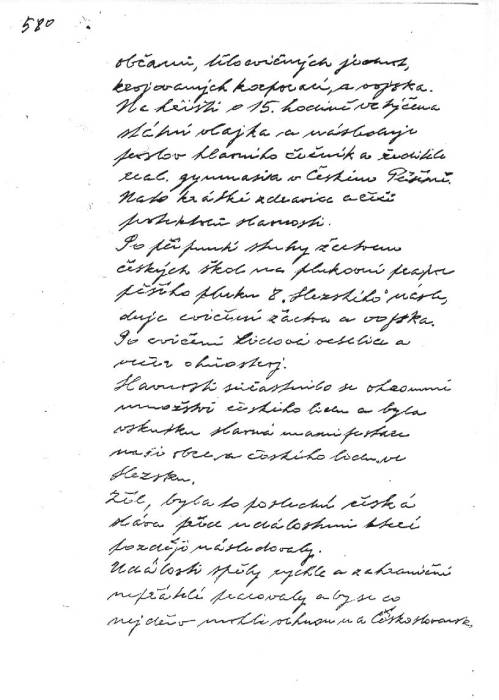 580
občanů, tělocvičných jednot,
krojovaných korporací, a vojska.
Na hřišti o 15. hodině vztýčena
státní vlajka a následuje
proslov hlavního řečníka ředitele
real. gymnasia v Českém Těšíně.
Nato krátké zdravice a řeči
protektorů slavnosti.
Po připnutí stuhy žactvem
českých škol na plukovní prapor
pěšího pluku 8. Slezského násle,
duje cvičení žactva a vojska.
Po cvičení lidová veselice a
večer ohňostroj.
Slavnosti súčastnilo se ohromné
množství českého lidu a byla
vskutku slavná manifestace
naší obce, a českého lidu, ve
Slezsku.
Žel, byla to poslední česká
sláva před událostmi které
později následovaly.
Události spěly rychle a zahraniční
nepřátelé pracovaly aby se co
nejdřív mohli vrhnou na Československ.